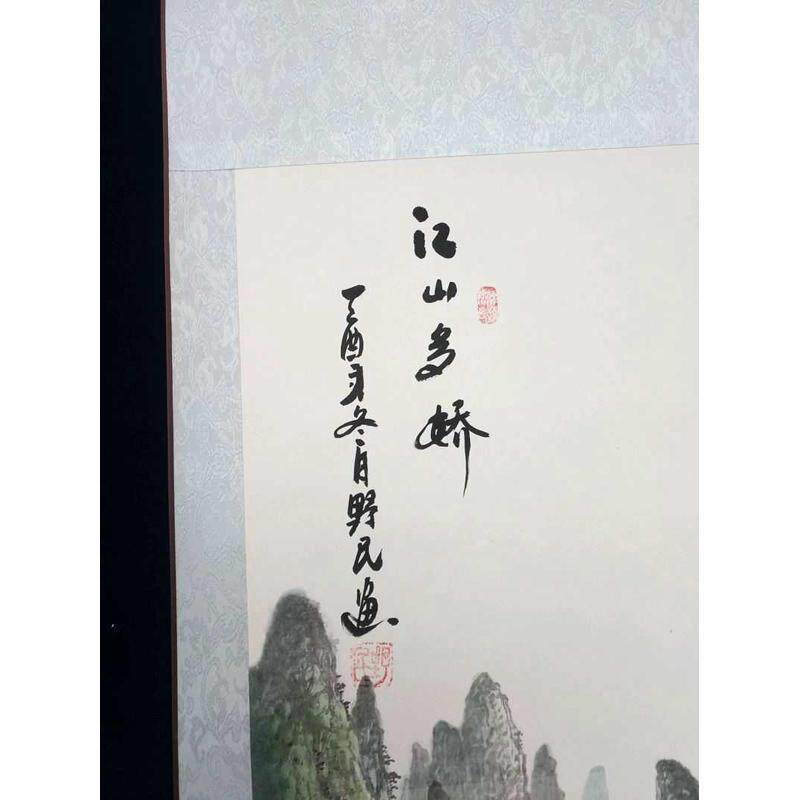 江山多娇
丁酉年冬月野民画